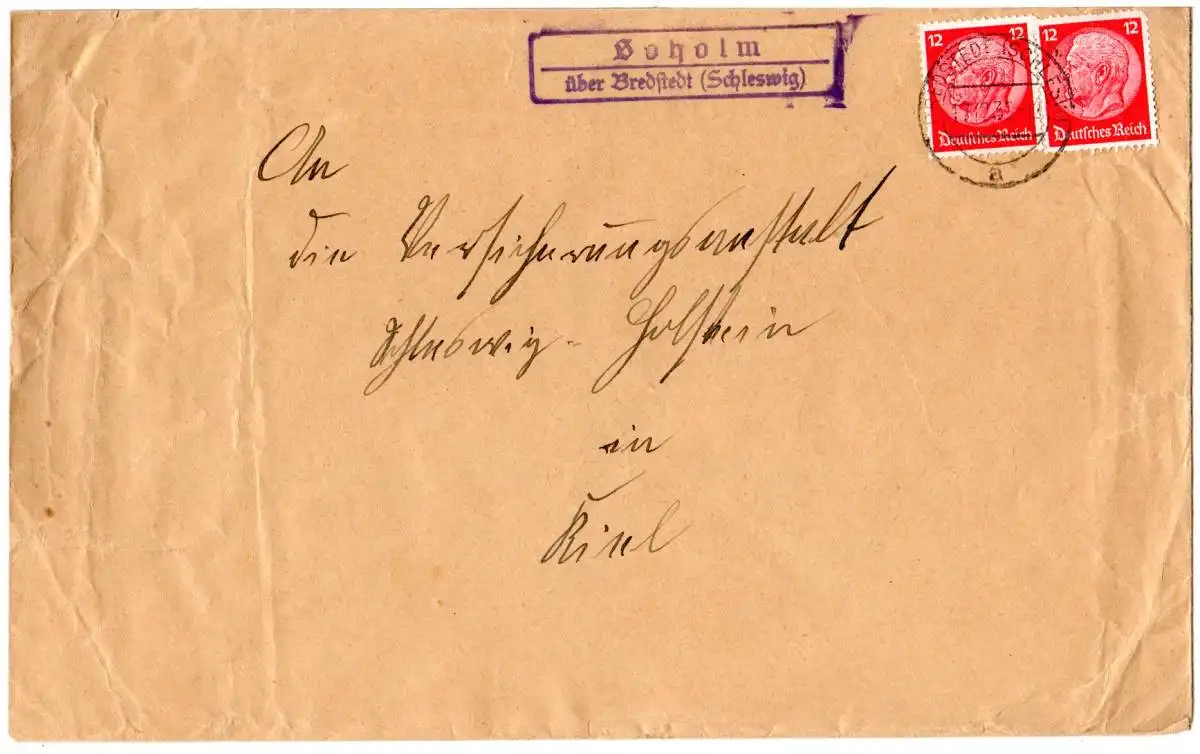 Soholm
über Bredstedt (Schleswig)
12 12
Deutsches Reich
12 12
Deutsches Reich
a
An
die Versicherungsanstalt
Schleswig-Holstein
in
Kiel